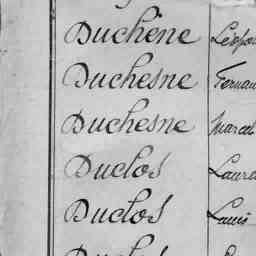 Duchêne Léopo
Duchesne Fernan
Duchesne Marcel
Duclos Laure
Duclos Louis
Duclos